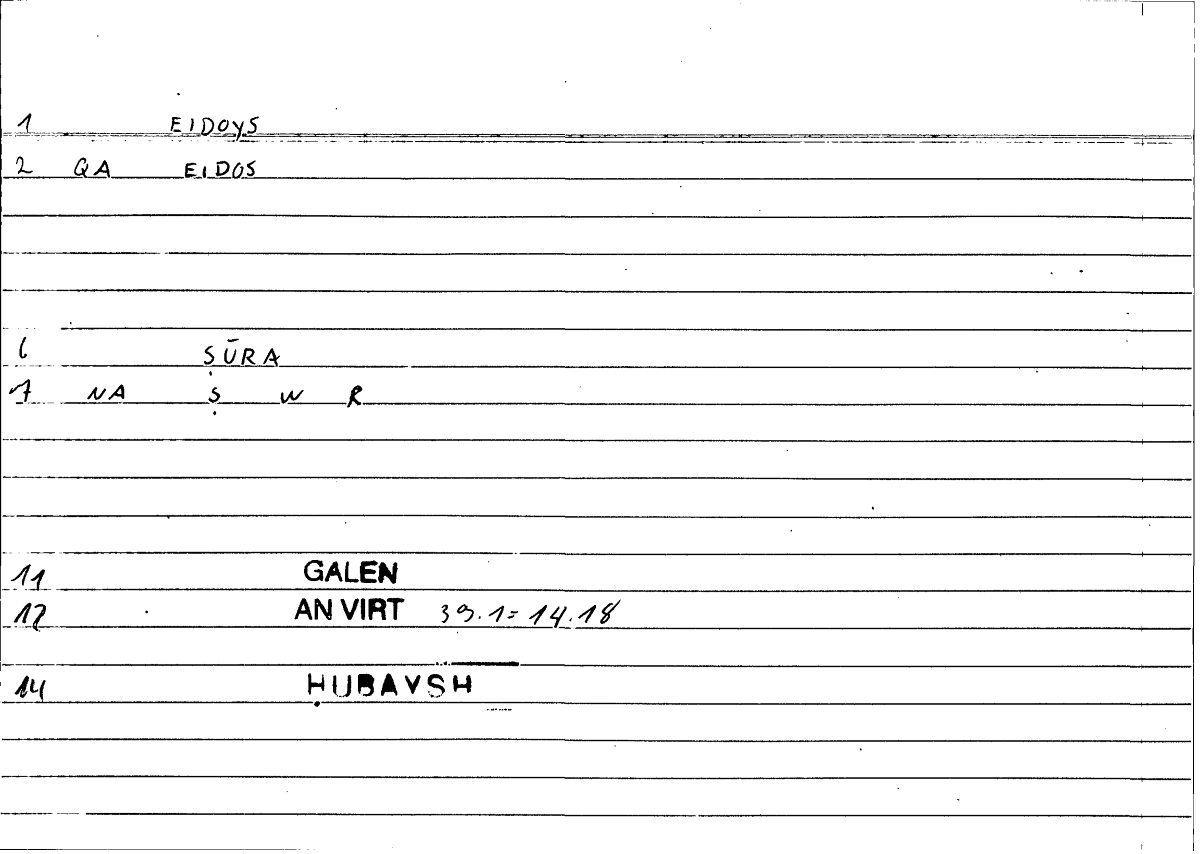 1 EIDOYS
2 QA EIDOS
6 ṢŪRA
7 NA Ṣ W R
11 GALEN
12 AN VIRT 39.1= 14.18
14 ḤUBAYSH